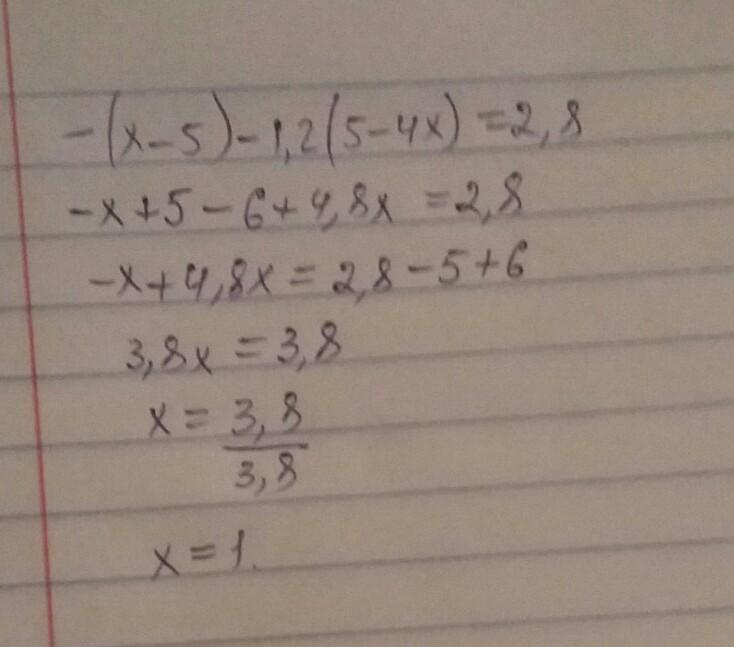 -(x-5)-1,2(5-4x)=2,8
-x+5-6+4,8x=2,8
-x+4,8x=2,8-5+6
3,8x=3,8
x=3,8/3,8
x=1.